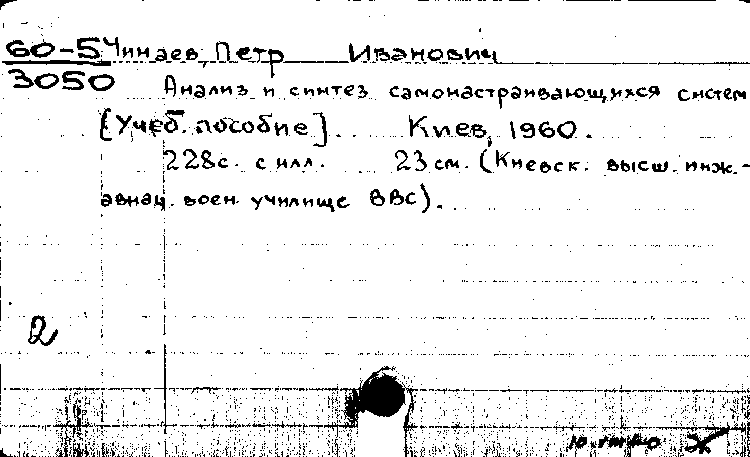 60-5 Чинаев, Петр Иванович
3050
Анализ и синтез самонастраивающихся систем
[Учеб. пособие]. Киев, 1960.
228с. с илл. 23 см. (Киевск. высш. инж.-
авиац. воен. училище ВВС).
2